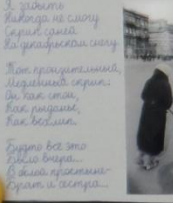 Я забыть
Никогда не смогу
Скрип саней
На декабрьском снегу.
Тот пронзительный,
Медленный скрип:
Он как стон,
Как рыданье,
Как всхлип.
Будто всё это
Было вчера...
В белой простыне -
Брат и сестра...